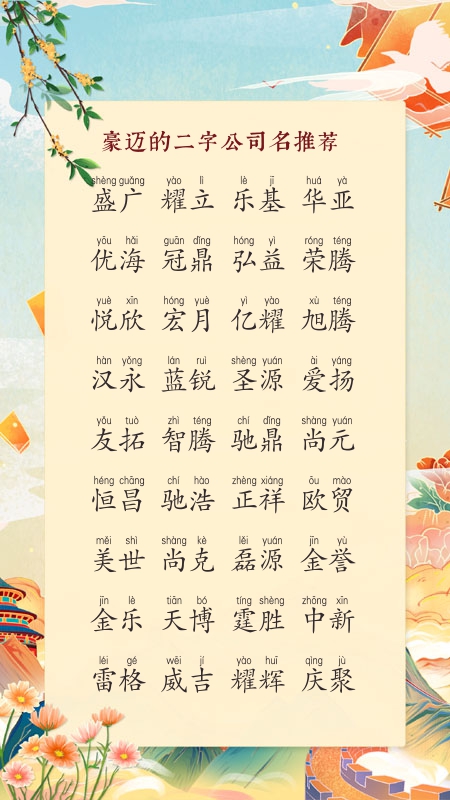 豪迈的二字公司名推荐
shèng guǎng yào lì lè jī huá yà
盛广 耀立 乐基 华亚
yōu hǎi guān dǐng hóng yì róng téng
优海 冠鼎 弘益 荣腾
yuè xīn hóng yuè yì yào xù téng
悦欣 宏月 亿耀 旭腾
hàn yǒng lán ruì shèng yuán ài yáng
汉永 蓝锐 圣源 爱扬
yǒu tuò zhì téng chí dǐng shàng yuán
友拓 智腾 驰鼎 尚元
héng chāng chí hào zhèng xiáng ōu mào
恒昌 驰浩 正祥 欧贸
měi shì shàng kè lěi yuán jīn yù
美世 尚克 磊源 金誉
jīn lè tiān bó tíng shèng zhōng xīn
金乐 天博 霆胜 中新
léi gé wēi jí yào huī qìng jù
雷格 威吉 耀辉 庆聚